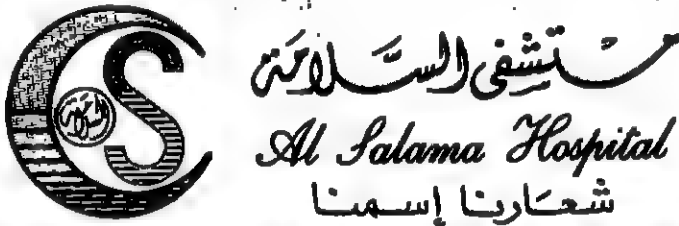 مستشفى السلامة
Al Salama Hospital
شعارنا إسمنا
S